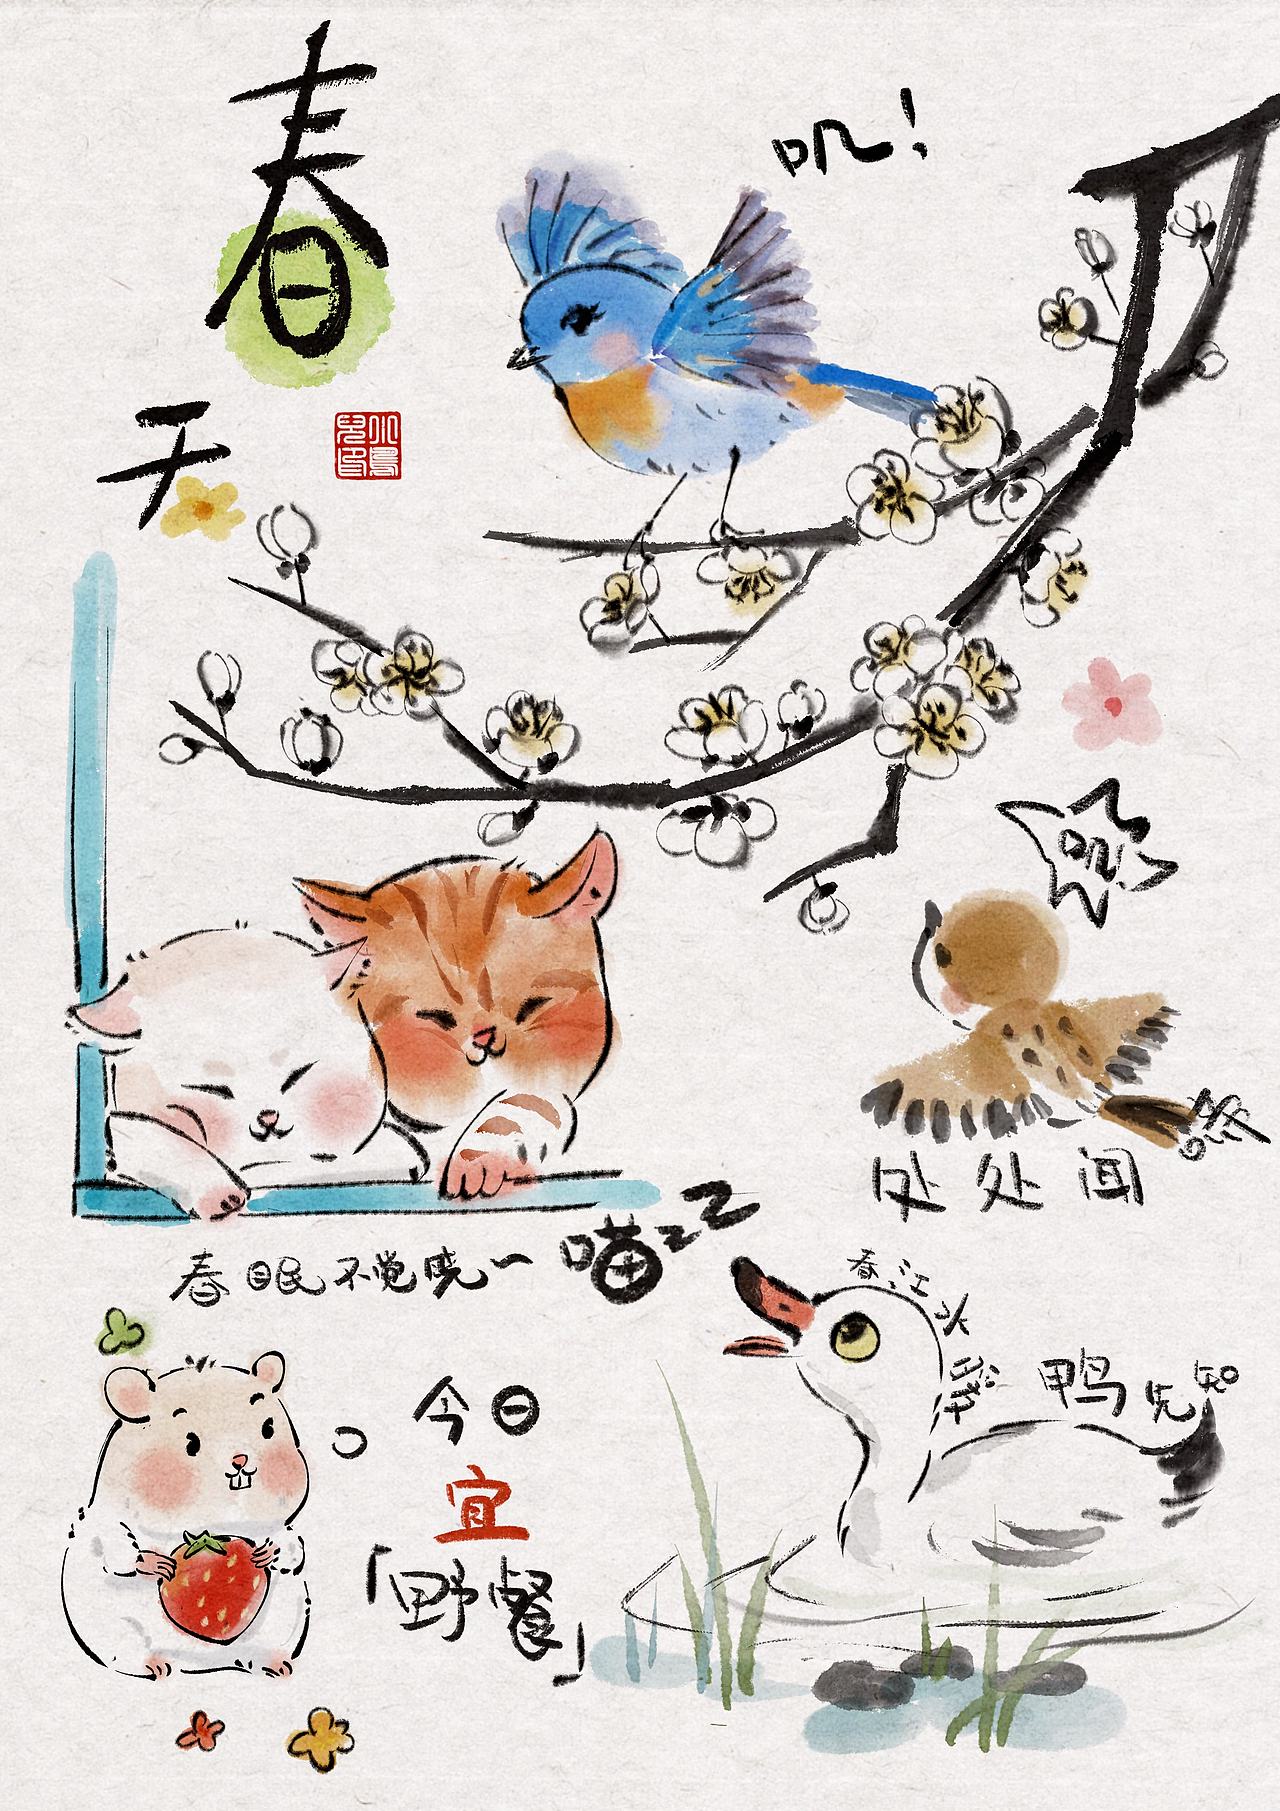 春
天
叽！
叽！
啼
处处闻
春眠不觉晓~
喵zzz
春江水暖
鸭先知
今日
宜
「野餐」